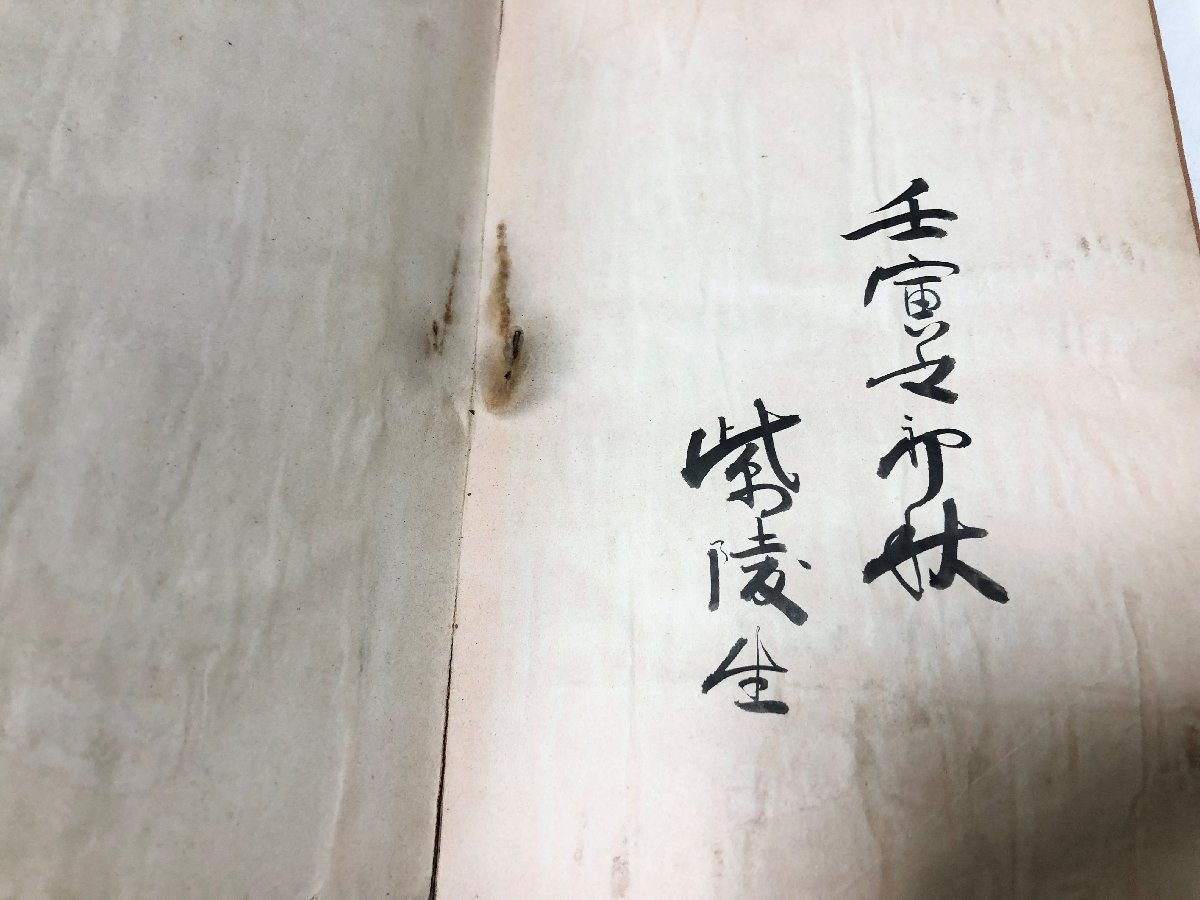 壬寅之初秋
紫陵生